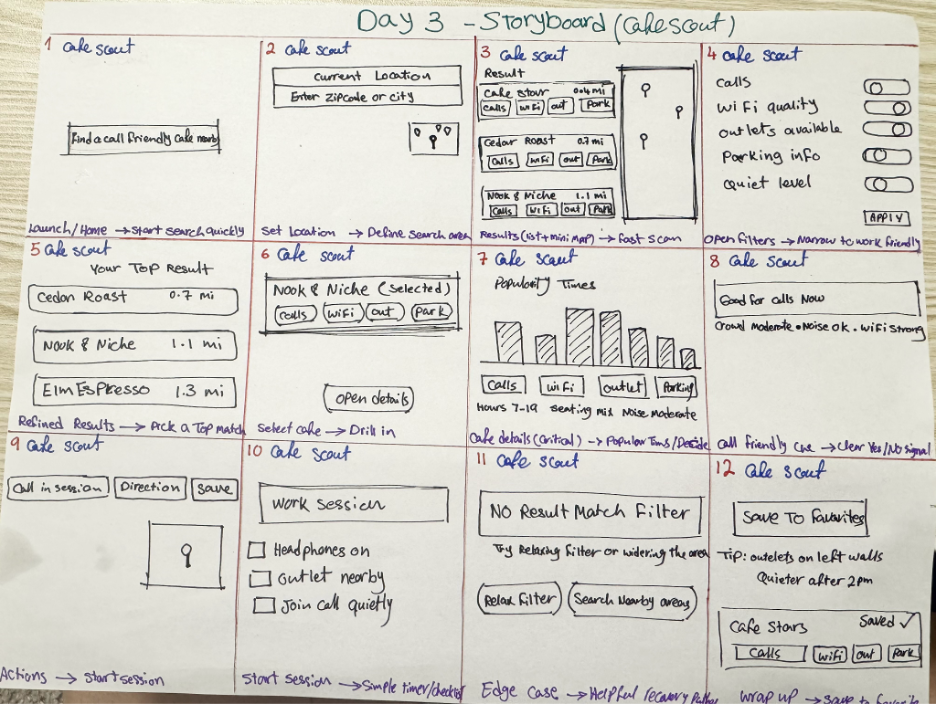 Day 3 - Storyboard (Cafescout)
1 Cafe scout
Find a call friendly Cafe nearby
Launch/Home → Start search quickly
2 Cafe scout
Current Location
Enter Zipcode or city
Set Location → Define Search area
3 Cafe scout
Result
Cafe Stour 0.4 mi
Calls WiFi out Park
Cedar Roast 0.7 mi
Calls WiFi out Park
Nook & Niche 1.1 mi
Calls WiFi out Park
Results (List + mini Map) → Fast Scan
4 Cafe scout
Calls
WiFi quality
Outlets available
Parking info
Quiet level
APPLY
Open Filters → Narrow to work friendly
5 Cafe scout
Your Top Result
Cedar Roast 0.7 mi
Nook & Niche 1.1 mi
Elm Espresso 1.3 mi
Refined Results → Pick a Top Match
6 Cafe scout
Nook & Niche (Selected)
Calls WiFi out Park
Open details
Select cafe → Drill in
7 Cafe scout
Popularity Times
Calls WiFi outlet Parking
Hours 7-19 Seating mix Noise moderate
Cafe details (Critical) → Popular Times/Decide
8 Cafe scout
Good for calls Now
Crowd moderate • Noise OK • WiFi strong
call friendly Cue → Clear Yes/No signal
9 Cafe scout
Call in session Direction Save
Actions → Start session
10 Cafe scout
Work Session
Headphones on
Outlet nearby
Join call quietly
Start Session → Simple timer/checklist
11 Cafe scout
No Result Match Filter
Try Relaxing Filter or widering the area
Relax Filter Search Nearby areas
Edge Case → Helpful recovery
12 Cafe scout
Save To Favorites
Tip: outelets on left walls
Quieter after 2pm
Cafe Stars Saved ✓
Calls WiFi out Park
Wrap up → Save to Favorite